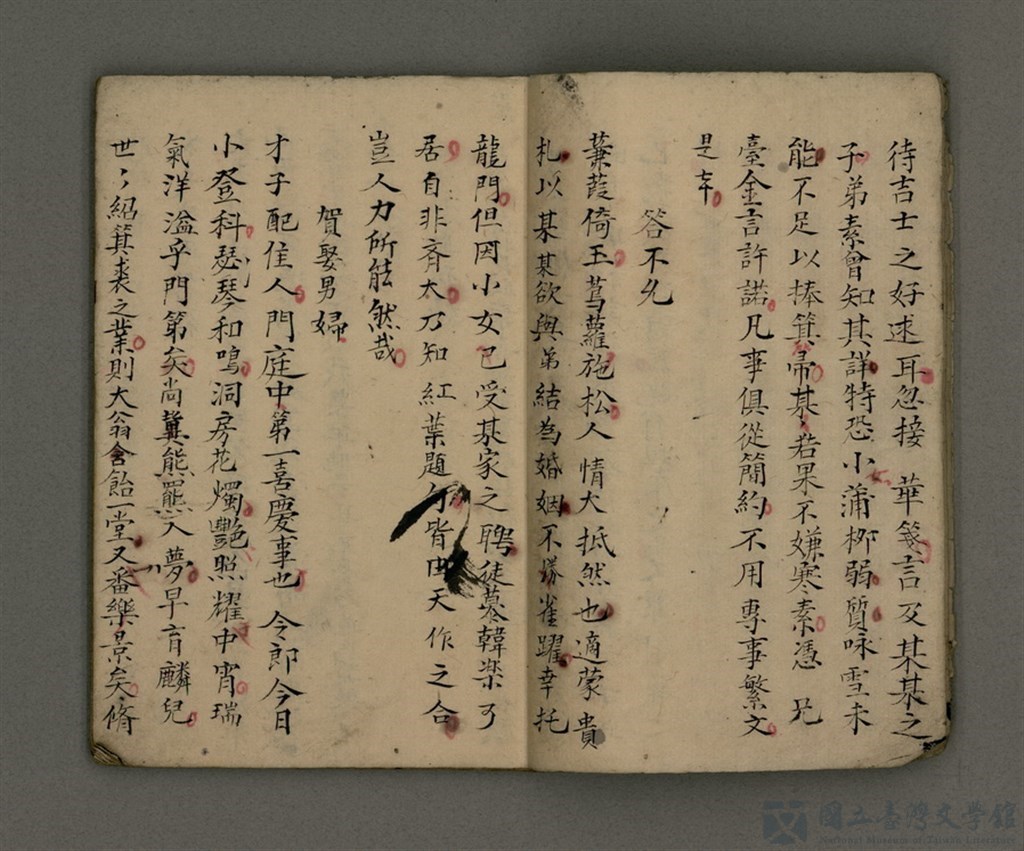 待吉士之好逑耳忽接 華箋言及某某之
子弟素曾知其詳特恐小女蒲柳弱質咏雪未
能不足以捧箕帚某〻若果不嫌寒素憑 兄
臺金言許諾凡事俱從簡約不用專事繁文
是幸
答不允
蒹葭倚玉蔦蘿施松人情大抵然也適蒙貴
札以某某欲與弟結為婚姻不勝雀躍幸托
龍門但因小女已受某家之聘徒慕韓樂可
居自非齊太乃知紅葉題句皆由天作之合
豈人力所能然哉
賀娶男婦
才子配佳人門庭中第一喜慶事也 令郎今日
小登科瑟琴和鳴洞房花燭艷照耀中宵瑞
氣洋溢乎門第矣尚冀熊羆入夢早育麟兒
世〻紹箕裘之業則大翁含飴一堂又一番樂景矣脩
國立臺灣文學館
National Museum of Taiwan Literature